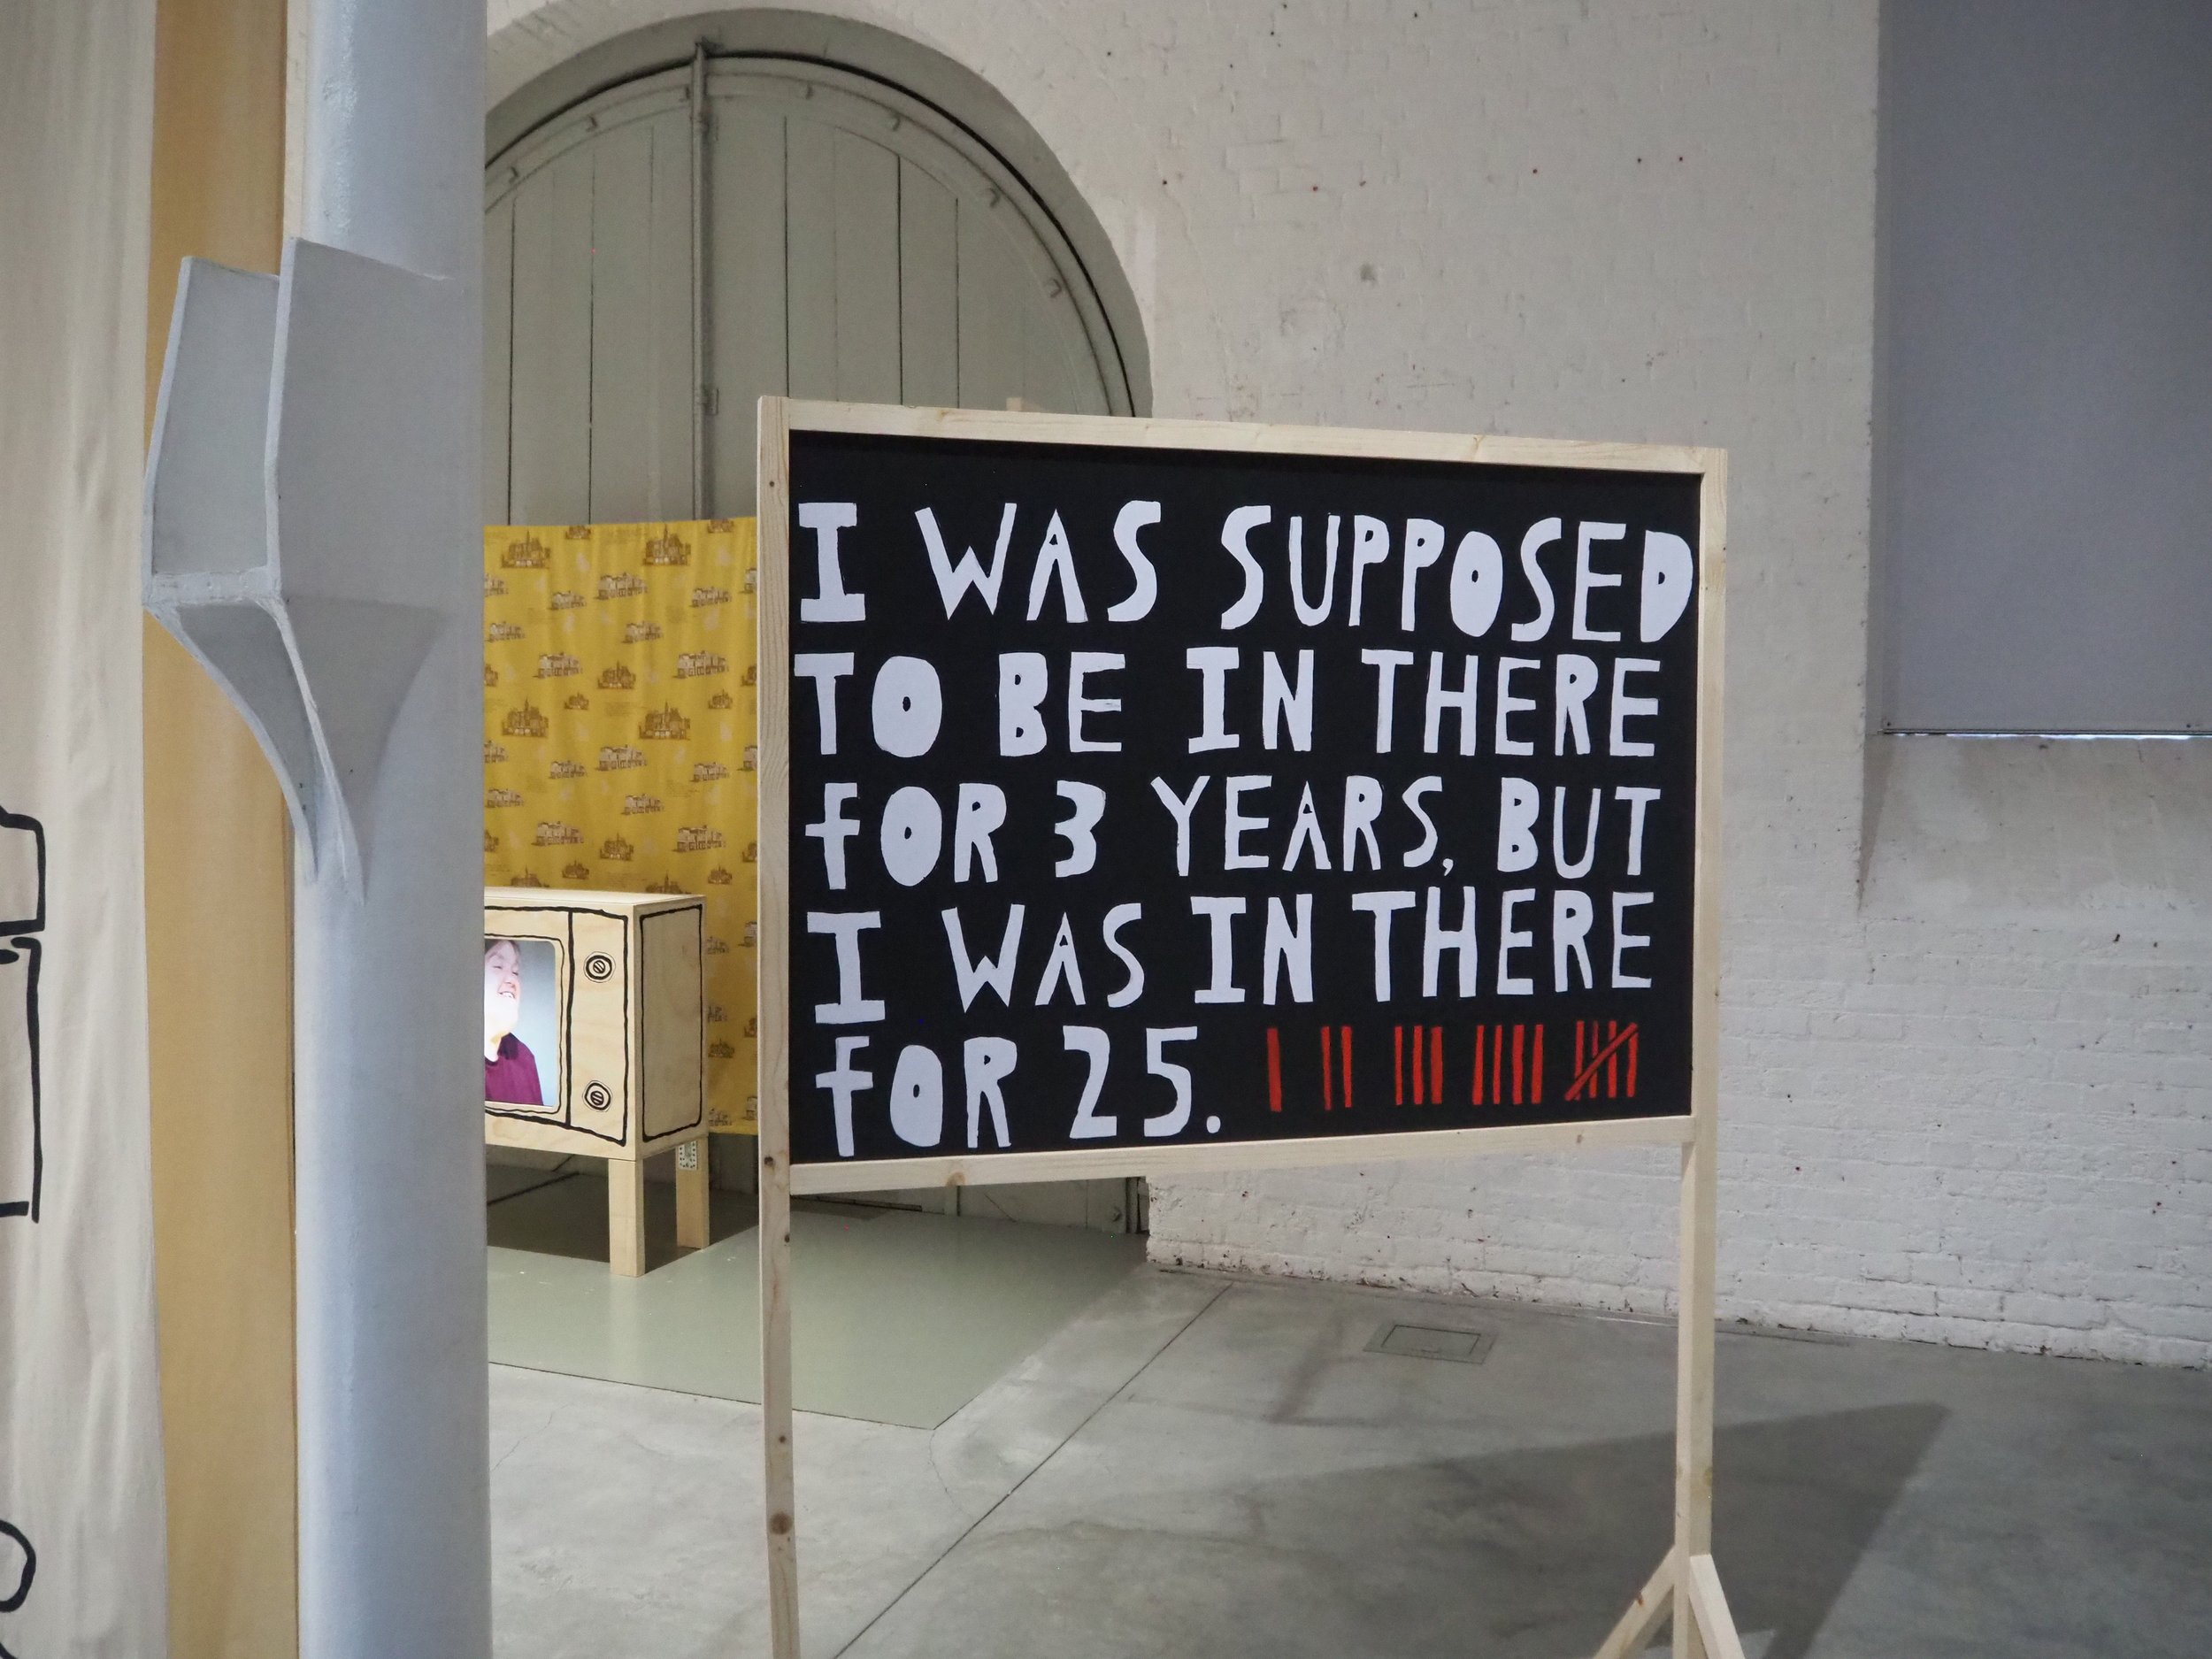 I WAS SUPPOSED
TO BE IN THERE
fOR 3 YEARS, BUT
I WAS IN THERE
fOR 25.